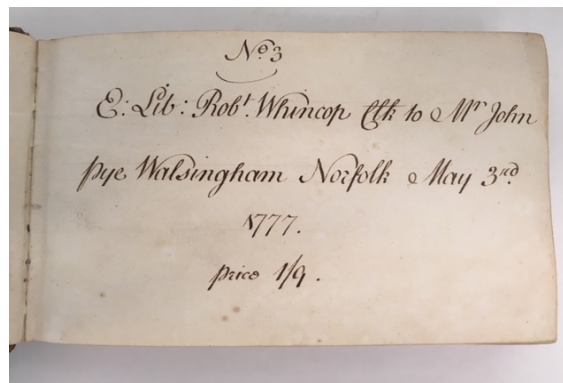 No. 3
E: Lib: Robt. Whincop Clk to Mr John
pye Walsingham Norfolk May 3rd.
1777.
price 1/9.